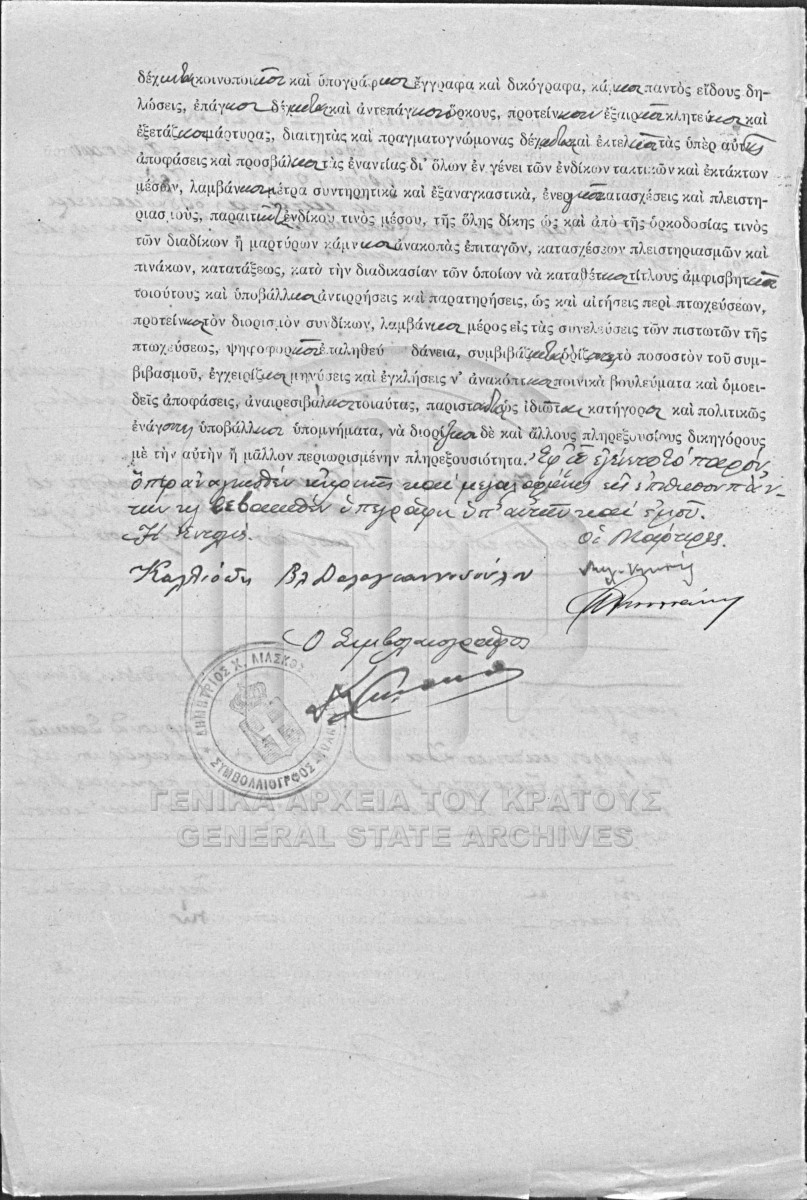 δέχηται κοινοποιῇ καὶ ὑπογράφῃ ἔγγραφα καὶ δικόγραφα, κάμνῃ παντὸς εἴδους δη-
λώσεις, ἐπάγῃ δέχηται καὶ ἀντεπάγῃ ὅρκους, προτείνῃ ἐξαιρῇ κλητεύῃ καὶ
ἐξετάζῃ μάρτυρας, διαιτητὰς καὶ πραγματογνώμονας δέχηται καὶ ἐκτελῇ τὰς ὑπὲρ αὐτῆς
ἀποφάσεις καὶ προσβάλῃ τὰς ἐναντίας δι' ὅλων ἐν γένει τῶν ἐνδίκων τακτικῶν καὶ ἐκτάκτων
μέσων, λαμβάνῃ μέτρα συντηρητικὰ καὶ ἐξαναγκαστικά, ἐνεργῇ κατασχέσεις καὶ πλειστη-
ριασμούς, παραιτῆται ἐνδίκου τινὸς μέσου, τῆς ὅλης δίκης ὡς καὶ ἀπὸ τῆς ὁρκοδοσίας τινὸς
τῶν διαδίκων ἢ μαρτύρων κάμνῃ ἀνακοπὰς ἐπιταγῶν, κατασχέσεων πλειστηριασμῶν καὶ
πινάκων, κατατάξεως, κατὰ τὴν διαδικασίαν τῶν ὁποίων νὰ καταθέτῃ τίτλους ἀμφισβητῇ
τοιούτους καὶ ὑποβάλλῃ ἀντιρρήσεις καὶ παρατηρήσεις, ὡς καὶ αἰτήσεις περὶ πτωχεύσεων,
προτείνῃ τὸν διορισμὸν συνδίκων, λαμβάνῃ μέρος εἰς τὰς συνελεύσεις τῶν πιστωτῶν τῆς
πτωχεύσεως, ψηφοφορῇ ἐπαληθεύ δάνεια, συμβιβάζηται ὁρίζῃ τὸ ποσοστὸν τοῦ συμ-
βιβασμοῦ, ἐγχειρίζῃ μηνύσεις καὶ ἐγκλήσεις ν' ἀνακόπτῃ ποινικὰ βουλεύματα καὶ ὁμοει-
δεῖς ἀποφάσεις, ἀναιρεσιβάλῃ τοιαύτας, παρισταται ὡς ἰδιώτης κατήγορος καὶ πολιτικῶς
ἐνάγων ὑποβάλλῃ ὑπομνήματα, νὰ διορίζῃ δὲ καὶ ἄλλους πληρεξουσίους δικηγόρους
μὲ τὴν αὐτὴν ἢ μᾶλλον περιωρισμένην πληρεξουσιότητα. Ἐφ' ᾧ ἐγένετο τὸ παρόν,
ὅπερ ἀναγνωσθὲν εὐκρινῶς καὶ μεγαλοφώνως εἰς ἐπήκοον πάν-
των καὶ βεβαιωθὲν ὑπεγράφη ὑπ' αὐτῶν καὶ ἐμοῦ.
Ἡ Ἐντολεύς Οἱ Μάρτυρες
Καλλιόπη Βλ
Ὁ Συμβολαιογράφος
ΔΗΜΗΤΡΙΟΣ Χ. ΛΙΑΣΚΟΣ
ΣΥΜΒΟΛΑΙΟΓΡΦΟΣ
ΓΕΝΙΚΑ ΑΡΧΕΙΑ ΤΟΥ ΚΡΑΤΟΥΣ
GENERAL STATE ARCHIVES